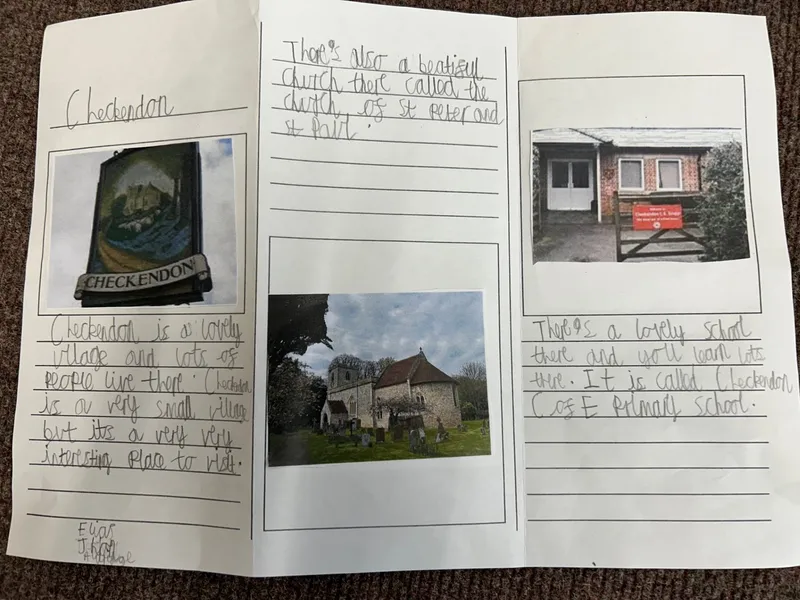 Checkendon
CHECKENDON
Checkendon is a lovely
village and lots of
people live there. Checkendon
is a very small village
but its a very very
interesting place to visit.
Elias
There's also a beatiful
church there called the
church of St Peter and
St Paul.
There's a lovely school
there and you'll learn lots
there. It is called Checkendon
C of E Primary School.